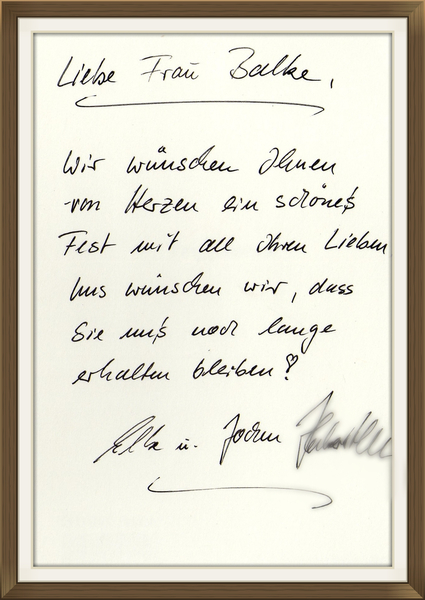 Liebe Frau Balke,
Wir wünschen Ihnen
von Herzen ein schönes
Fest mit all Ihren Lieben
Uns wünschen wir, dass
Sie uns noch lange
erhalten bleiben!
Elke u. Jochen